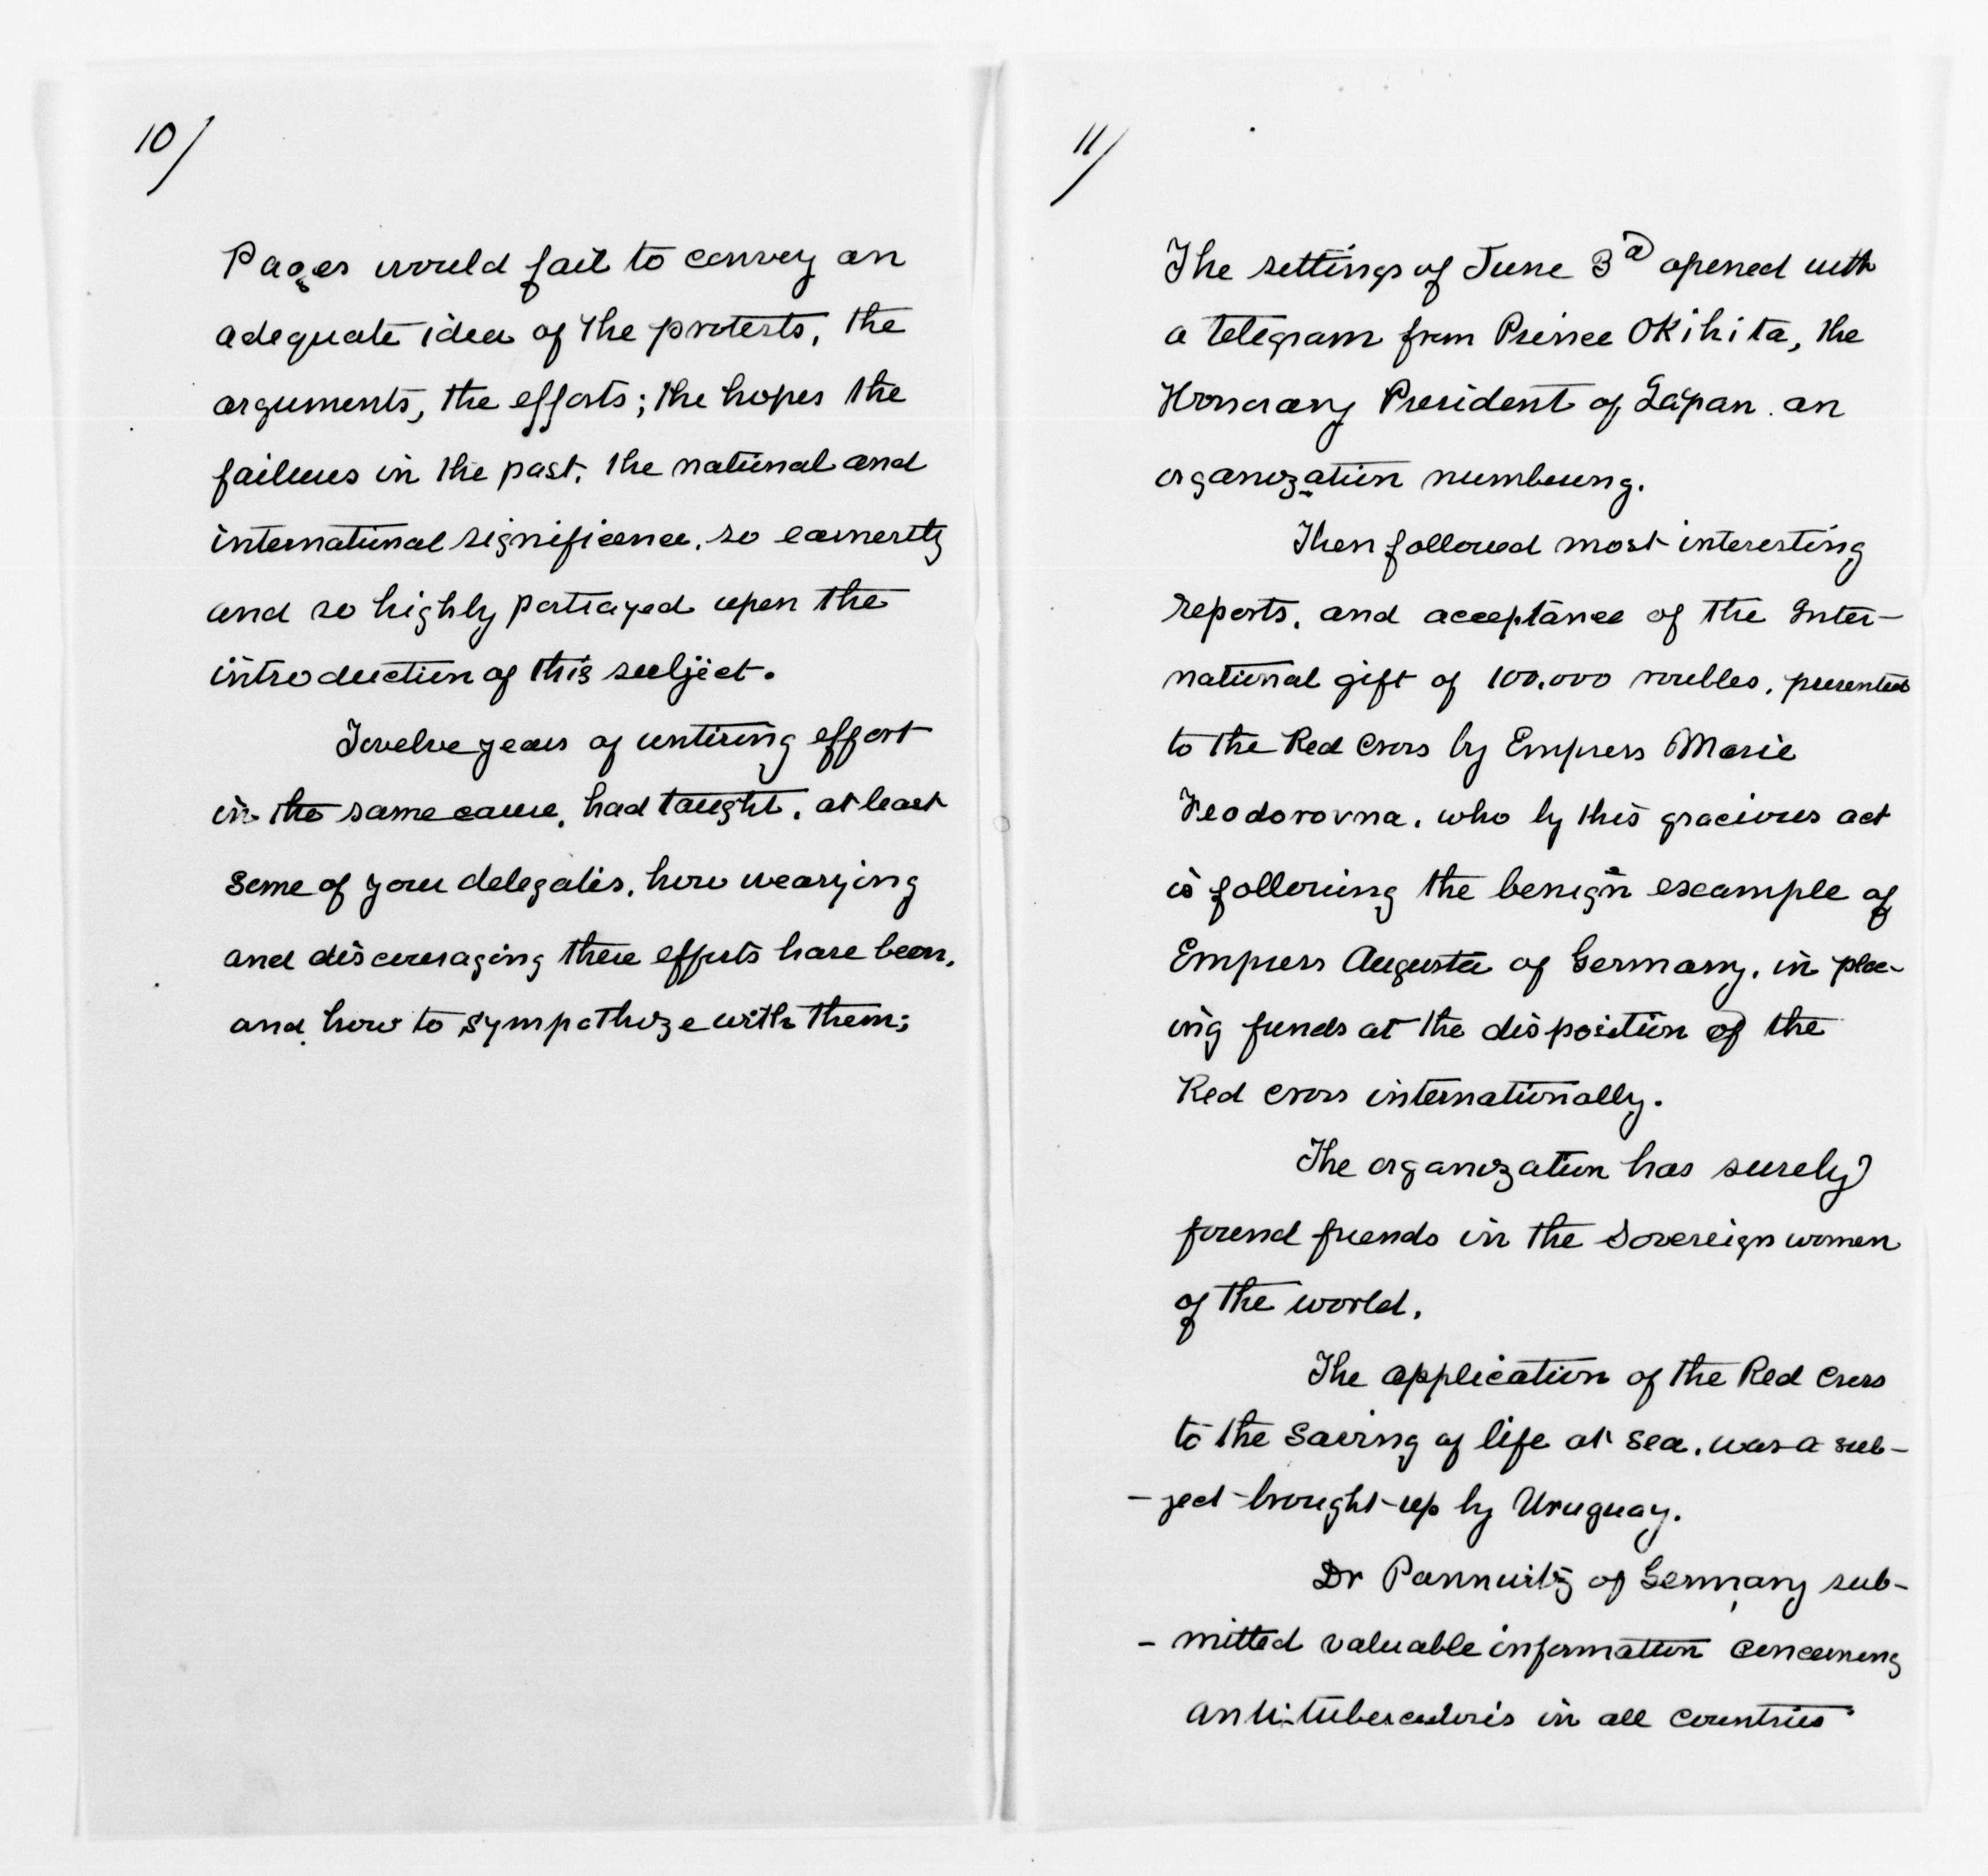 10/
Pages would fail to convey an
adequate idea of the protests, the
arguments, the efforts; the hopes the
failures in the past, the national and
international significance, so earnestly
and so highly portrayed upon the
introduction of this subject.
Twelve years of untiring effort
in the same cause, had taught, at least
some of your delegates, how wearying
and discouraging these efforts have been,
and how to sympathize with them;
11/
The settings of June 3d opened with
a telegram from Prince Okihita, the
Honorary President of Japan. an
organization numbering.
Then followed most interesting
reports, and acceptance of the Inter-
national gift of 100.000 roubles, presented
to the Red Cross by Empress Marie
Feodorovna, who by this gracious act
is following the benign example of
Empress Augusta of Germany, in plac-
ing funds at the disposition of the
Red Cross internationally.
The organization has surely
found friends in the Sovereign women
of the world.
The application of the Red Cross
to the saving of life at sea, was a sub-
-ject brought up by Uruguay.
Dr Pannwitz of Germany sub-
- mitted valuable information concerning
anti-tuberculosis in all countries